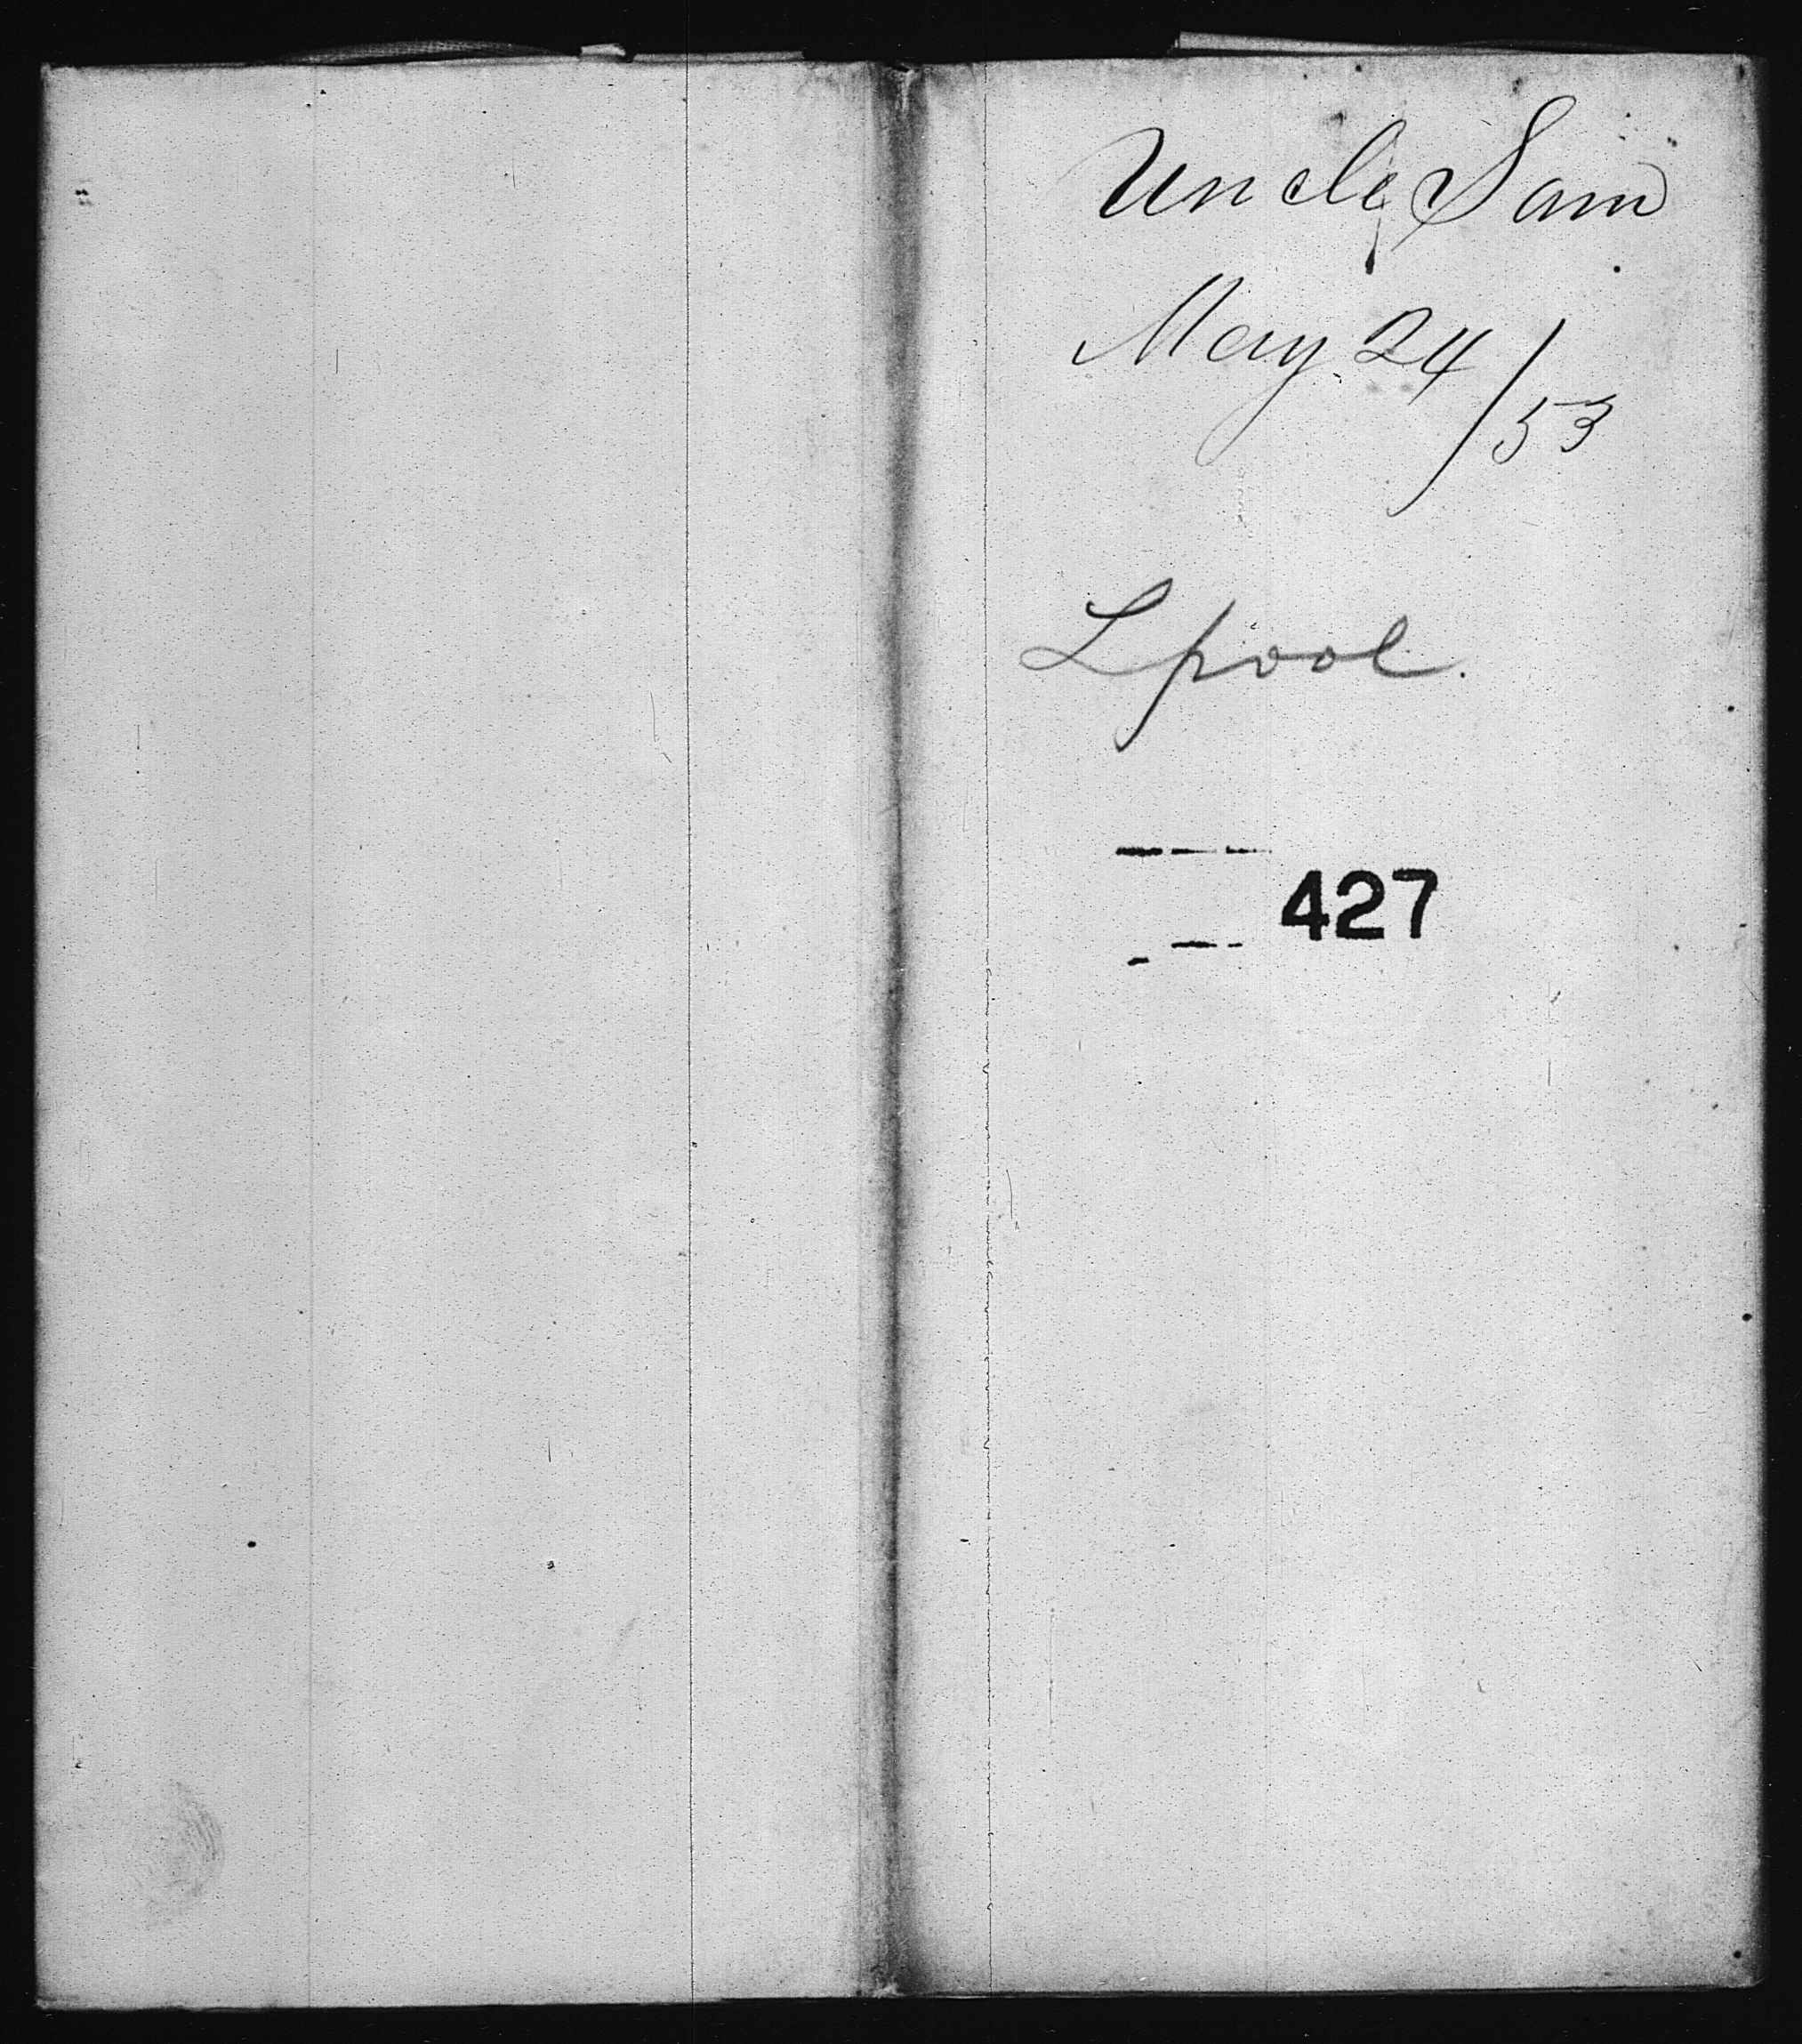 Uncle Sam
May 24/53
L pool.
427